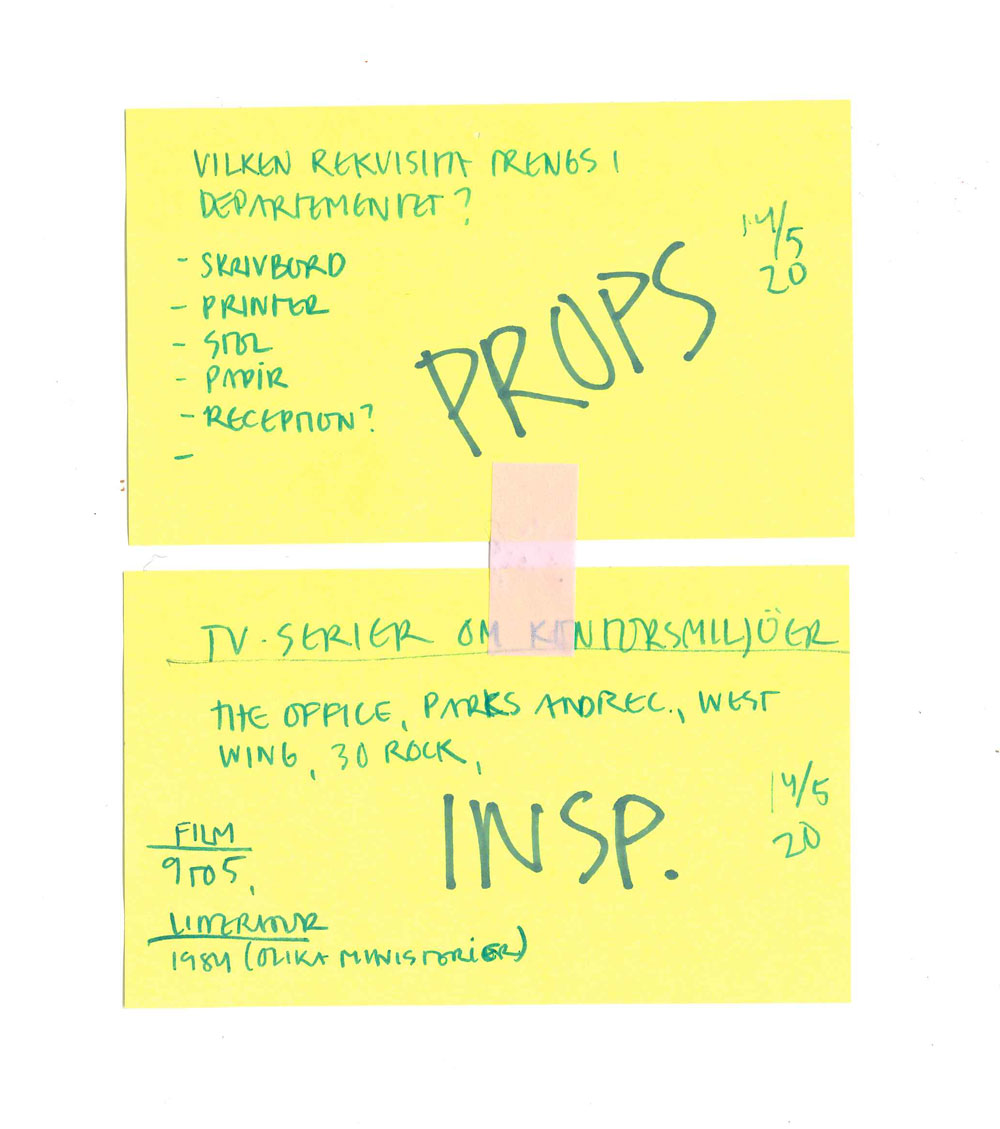 VILKEN REKVISITA TRENGS I
DEPARTEMENTET?
- SKRIVBORD
- PRINTER
- STOL
- PAPIR
- RECEPTION?
-
PROPS
14/5
20
TV-SERIER OM KONTORSMILJÖER
THE OFFICE, PARKS AND REC., WEST
WING, 30 ROCK,
INSP.
14/5
20
FILM
9 TO 5,
LITTERATUR
1984 (OLIKA MINISTERIER)